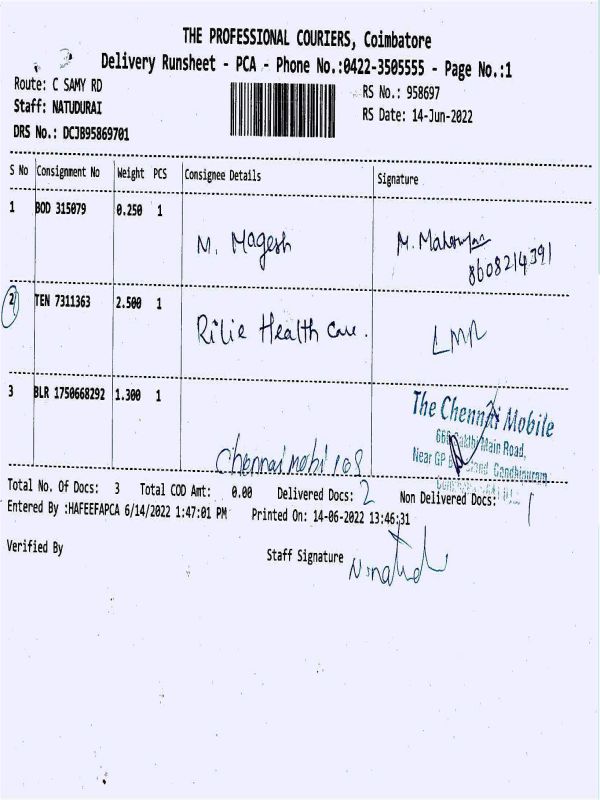 THE PROFESSIONAL COURIERS, Coimbatore
Delivery Runsheet - PCA - Phone No.:0422-3505555 - Page No.:1
Route: C SAMY RD
RS No.: 958697
Staff: NATUDURAI
RS Date: 14-Jun-2022
DRS No.: DCJB95869701
S No Consignment No Weight PCS Consignee Details Signature
1 BOD 315079 0.250 1
M. Magesh
8608214391
2 TEN 7311363 2.500 1
Rilie Health Care.
3 BLR 1750668292 1.300 1
The Chennai Mobile
Main Road,
Near GP Gandhipuram,
Chennai mobi
Total No. Of Docs: 3 Total COD Amt: 0.00 Delivered Docs: 2 Non Delivered Docs: 1
Entered By :HAFEEFAPCA 6/14/2022 1:47:01 PM Printed On: 14-06-2022 13:46:31
Verified By Staff Signature